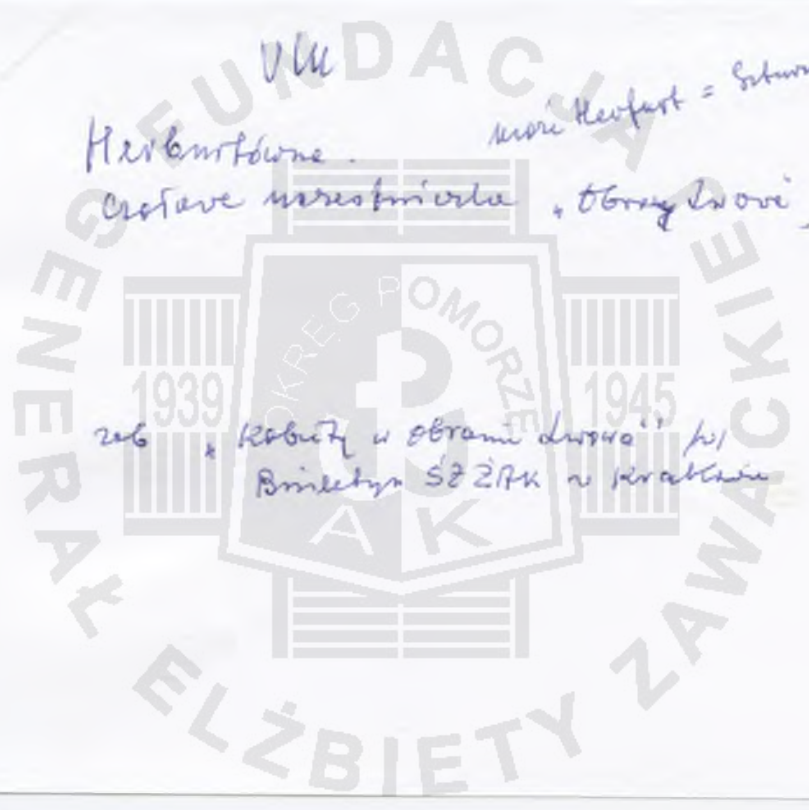 VUU
może Herfurt =
Herburtówna.
czołowe uczestniczka „Obrony Lwowa
zob „Kobiety w obronie Lwowa" /w/
Biuletyn ŚZŻAK w Krakowie
FUNDACJA GENERAŁ ELŻBIETY ZAWACKIEJ
OKRĘG POMORZE
1939 1945
AK